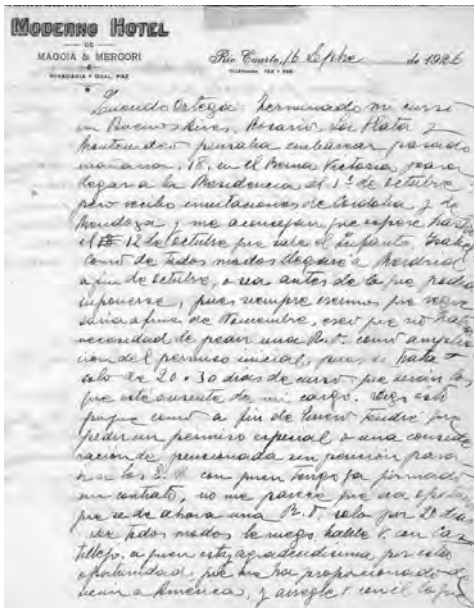 MODERNO HOTEL
DE
MAGGIA & MERCORI
RIVADAVIA Y GRAL. PAZ
Río Cuarto, 16 Sepbre de 1926
Querido Ortega: Terminado mi curso
en Buenos Aires, Rosario, La Plata y
Montevideo pensaba embarcar pasado
mañana, 18, en el Reina Victoria para
llegar a la Residencia el 1º de octubre
pero recibo invitaciones de Córdoba y de
Mendoza y me aconsejan que espere hasta
el 12 de octubre que sale el Infanta Isabel
como de todos modos llegaré a Madrid
a fin de octubre, o sea antes de lo que podía
suponerse, pues siempre creímos que regre
saría a fines de Noviembre, creo que no habrá
necesidad de pedir una R.O. como amplia
ción del permiso inicial, pues se trata
solo de 20 o 30 días de curso que serán los
que esté ausente de mi cargo. Digo esto
porque como a fin de Enero tendré que
pedir un permiso especial o una conside
ración de pensionada sin pensión para
ir a los E.U. con quien tengo ya firmado
un contrato, no me parece que sea
que se dé ahora una R.O. solo por 20 días
de todos modos le ruego hable V. con Cas
tillejo, a quien estoy agradecidísima por esta
oportunidad que me ha proporcionado de
venir a América, y arregle V. con él lo que